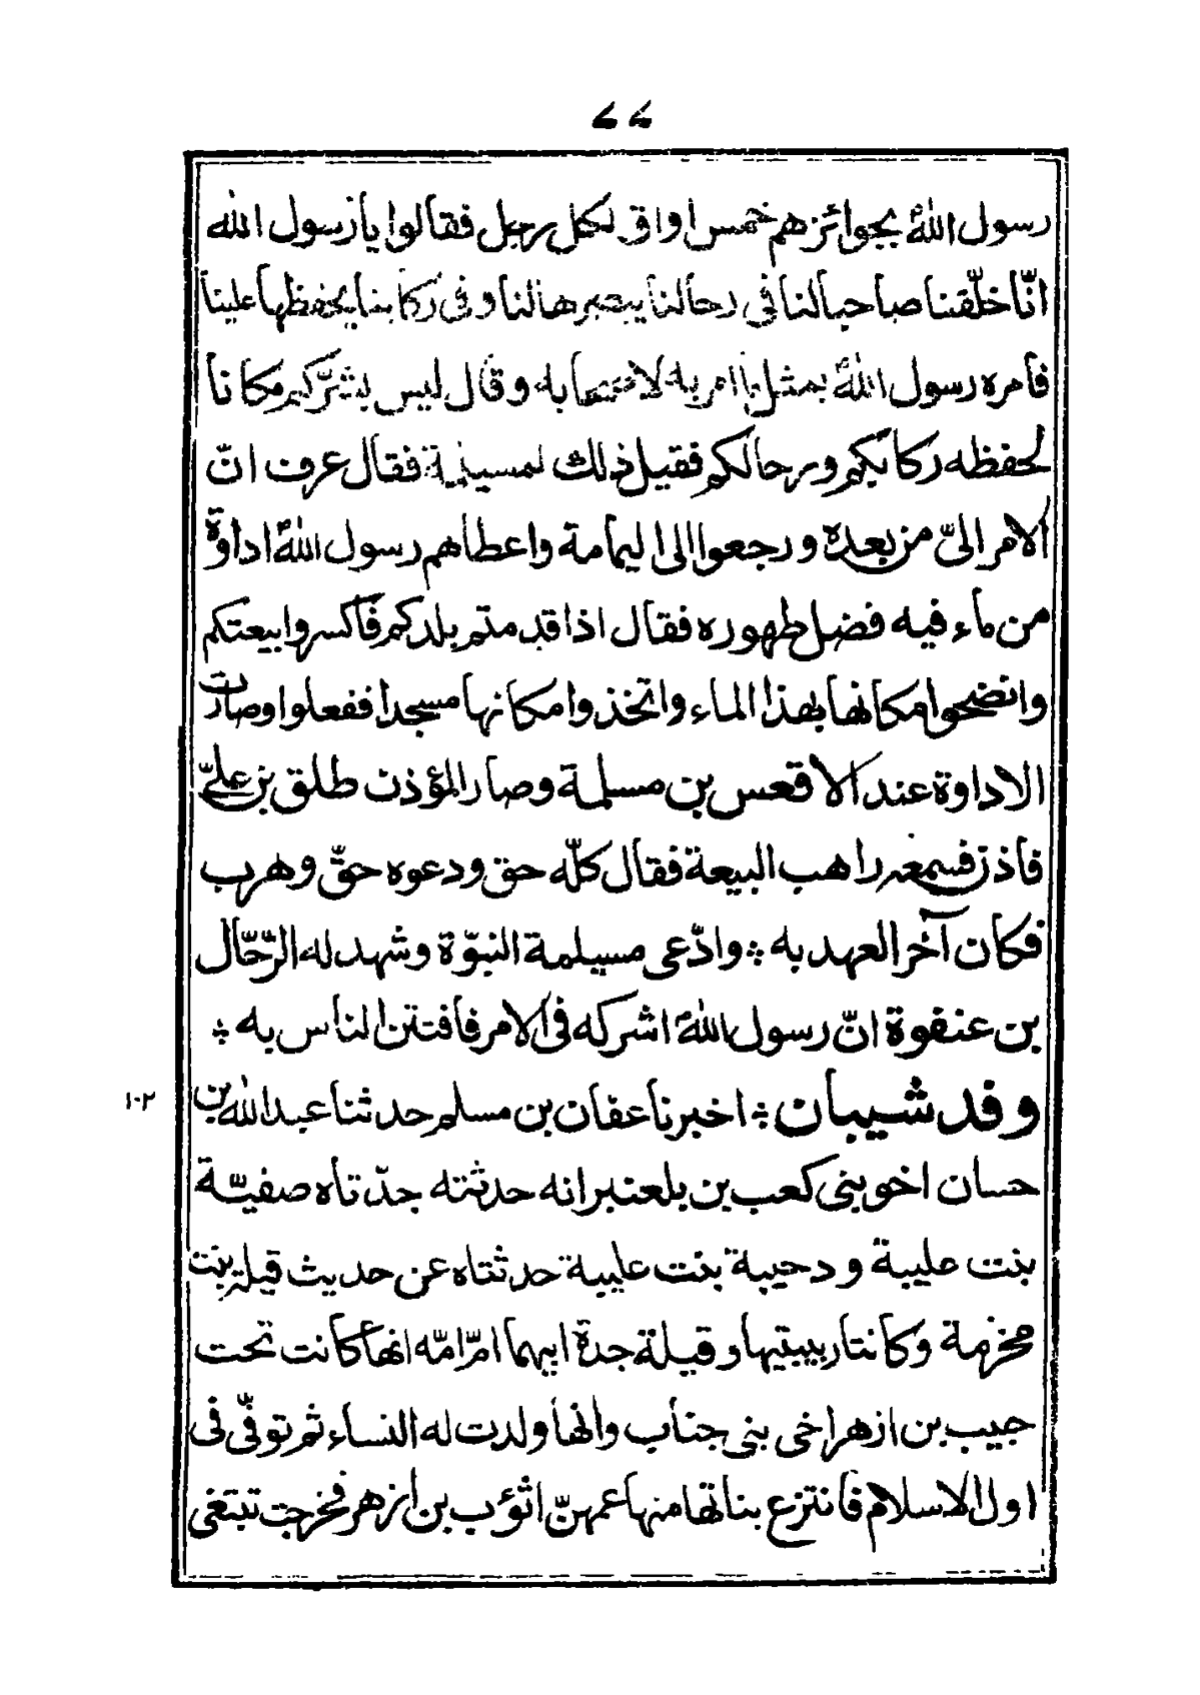 رسول اللهؐ بجوائزهم خمس اواق لكل رجل فقالوا يا رسول الله
انّا خلّفنا صاحبا لنا فى رحالنا يبصرها لنا وفى ركابنا يحفظها علينا
فامره رسول اللهؐ بمثل ما امر به لاصحابه وقال ليس بشرّكم مكانا
لحفظه ركابكم ورحالكم فقيل ذلك لمسيلمة فقال عرف انّ
الامر الىّ من بعده ورجعوا الى اليمامة واعطاهم رسول اللهؐ اداوة
من ماء فيه فضل طهوره فقال اذا قدمتم بلدكم فاكسروا بيعتكم
وانضحوا مكانها بهذا الماء واتخذوا مكانها مسجدا ففعلوا وصارت
الاداوة عند الاقعس بن مسلمة وصار المؤذن طلق بن علىّ
فاذن فسمعه راهب البيعة فقال كلّه حق ودعوه حقّ وهرب
فكان آخر العهد به ⁘ وادّعى مسيلمة النبوّة وشهد له الرّحّال
بن عنفوة انّ رسول اللهؐ اشركه فى الامر فافتتن الناس به ⁘
١٠٢
وفد شيبان ⁘ اخبرنا عفان بن مسلم حدثنا عبد الله بن
حسان اخو بنى كعب بن بلعنبر انه حدثته جدّتاه صفيّة
بنت عليبة ودحيبة بنت عليبة حدثتاه عن حديث قيلة بنت
مخزمة وكانتا ربيبتيها وقيلة جدة ابيهما امّ امّه انها كانت تحت
حبيب بن ازهر اخى بنى جناب وانها ولدت له النساء ثم توفّى فى
اول الاسلام فانتزع بناتها منها عمهنّ اثؤب بن ازهر فخرجت تبتغى